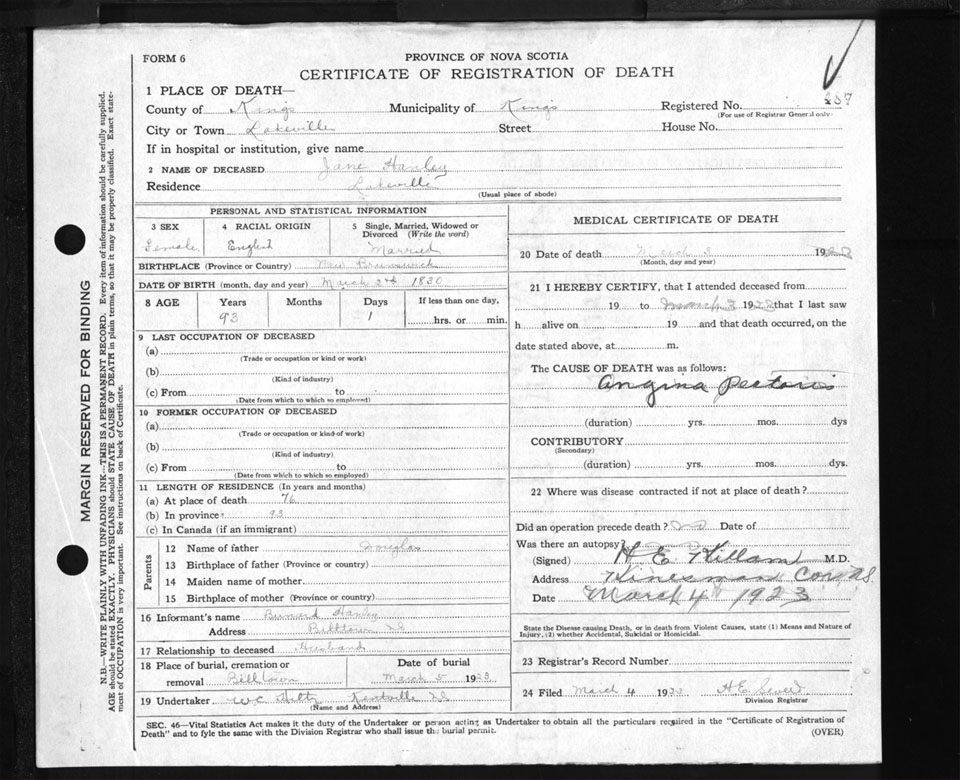 FORM 6
PROVINCE OF NOVA SCOTIA
CERTIFICATE OF REGISTRATION OF DEATH
1 PLACE OF DEATH—
County of Kings Municipality of Kings Registered No. 257
(For use of Registrar General only)
City or Town Lakeville Street House No.
If in hospital or institution, give name
2 NAME OF DECEASED Jane Hanley
Residence Lakeville
(Usual place of abode)
PERSONAL AND STATISTICAL INFORMATION
3 SEX 4 RACIAL ORIGIN 5 Single, Married, Widowed or Divorced (Write the word)
Female English Married
BIRTHPLACE (Province or Country) New Brunswick
DATE OF BIRTH (month, day and year) March 2nd 1830
8 AGE Years Months Days If less than one day,
93 1 hrs. or min.
9 LAST OCCUPATION OF DECEASED
(a)
(Trade or occupation or kind or work)
(b)
(Kind of industry)
(c) From to
(Date from which to which so employed)
10 FORMER OCCUPATION OF DECEASED
(a)
(Trade or occupation or kind of work)
(b)
(Kind of industry)
(c) From to
(Date from which to which so employed)
11 LENGTH OF RESIDENCE (In years and months)
(a) At place of death 76
(b) In province 93
(c) In Canada (if an immigrant)
Parents
12 Name of father
13 Birthplace of father (Province or country)
14 Maiden name of mother
15 Birthplace of mother (Province or country)
16 Informant's name Bernard Hanley
Address Billtown NS
17 Relationship to deceased Husband
18 Place of burial, cremation or removal Date of burial
Billtown March 5 1923
19 Undertaker W.C. Hiltz Kentville NS
(Name and Address)
MEDICAL CERTIFICATE OF DEATH
20 Date of death March 3 19
(Month, day and year)
21 I HEREBY CERTIFY, that I attended deceased from
19 to March 19 that I last saw
h alive on 19 and that death occurred, on the
date stated above, at m.
The CAUSE OF DEATH was as follows:
Angina Pectoris
(duration) yrs. mos. dys
CONTRIBUTORY
(Secondary)
(duration) yrs. mos. dys.
22 Where was disease contracted if not at place of death?
Did an operation precede death? no Date of
Was there an autopsy?
(Signed) H E Killam M.D.
Address Kinsman Cor NS
Date March 4 1923
State the Disease causing Death, or in death from Violent Causes, state (1) Means and Nature of
Injury, (2) whether Accidental, Suicidal or Homicidal.
23 Registrar's Record Number
24 Filed March 4 1923 H E
Division Registrar
SEC. 46—Vital Statistics Act makes it the duty of the Undertaker or person acting as Undertaker to obtain all the particulars required in the "Certificate of Registration of
Death" and to fyle the same with the Division Registrar who shall issue the burial permit. (OVER)
MARGIN RESERVED FOR BINDING
N.B.—WRITE PLAINLY WITH UNFADING INK—THIS IS A PERMANENT RECORD. Every item of information should be carefully supplied.
AGE should be stated EXACTLY. PHYSICIANS should STATE CAUSE OF DEATH in plain terms, so that it may be properly classified. Exact state-
ment of OCCUPATION is very important. See instructions on back of Certificate.